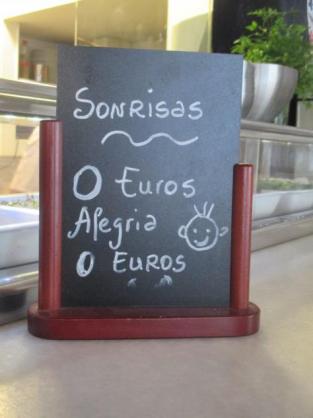 SONRISAS
0 Euros
Alegria
0 EUROS